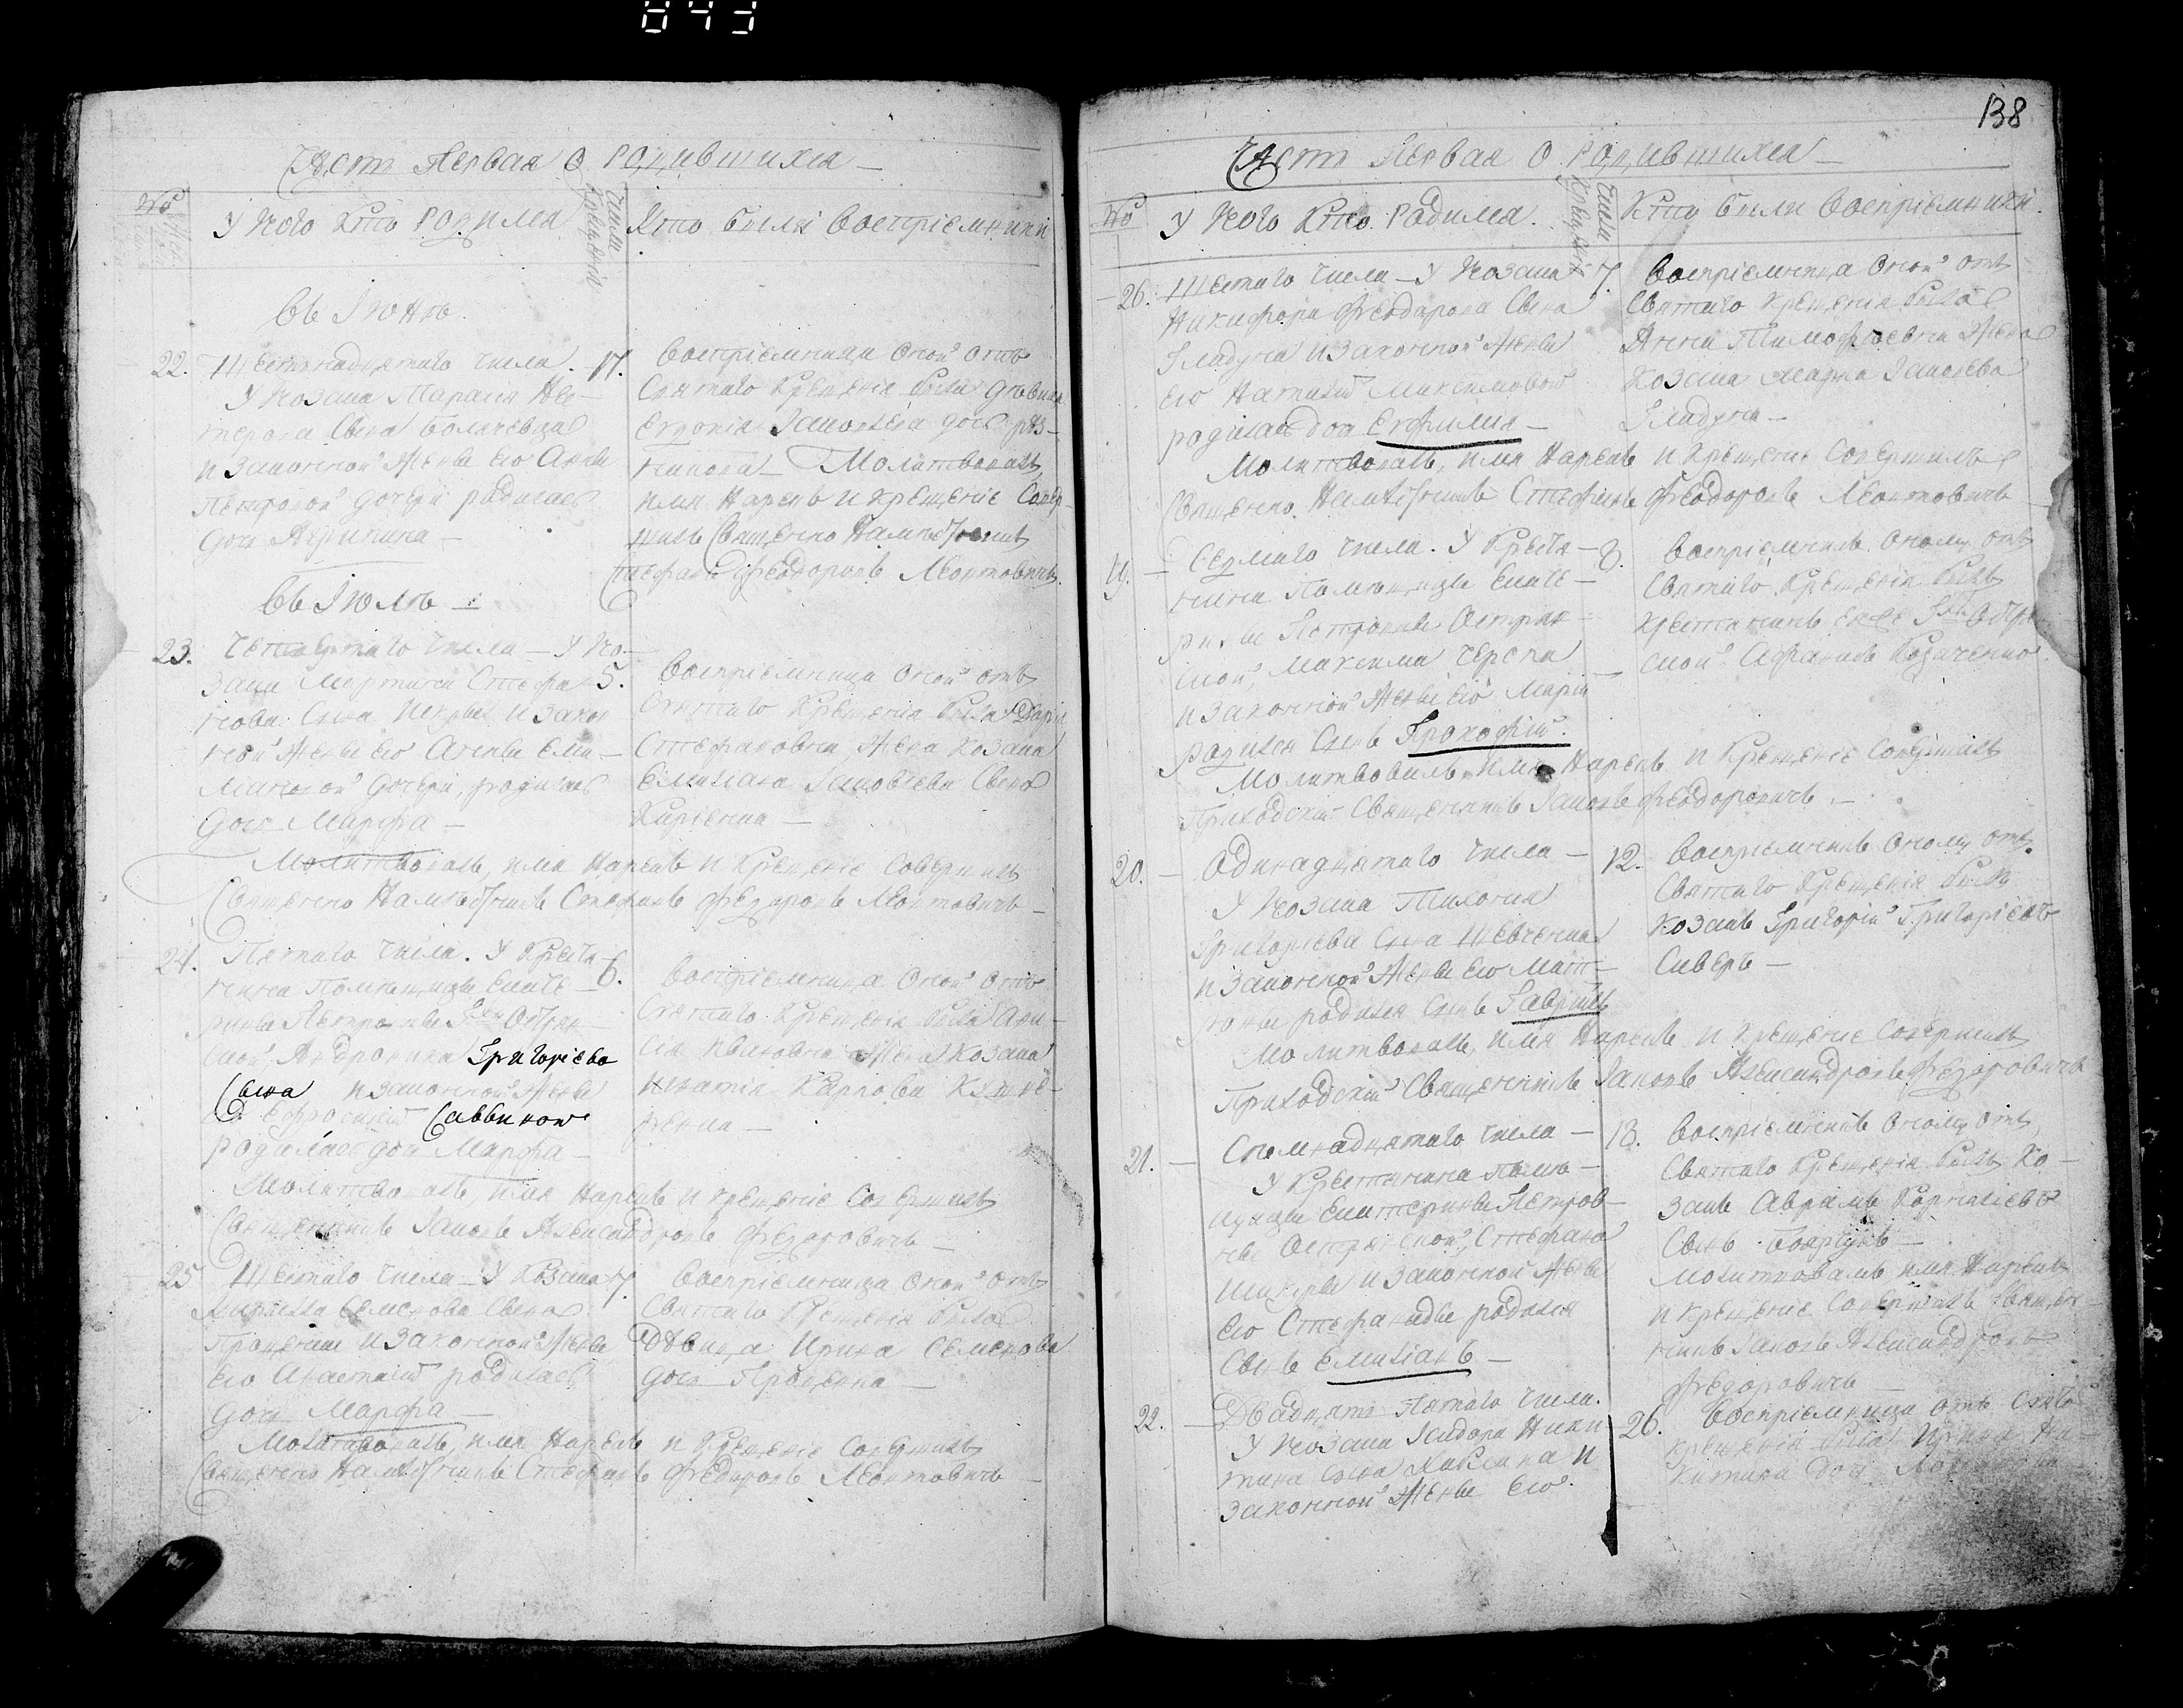 843
Часть Первая О Родившихся
№
У Кого Кто Родился
Числа Крещенія
Кто были Воспріемники
Въ Іюнѣ.
22. Шестнадцатаго числа.
У Козака Тарасія Нес-
терова Сына
и Законной Жены Его Анны
Петровой дочери родилась
дочь Акилина
17.
Воспріемница Оной отъ
Святаго Крещенія была дѣвица
Евдокія Іаковлева дочь
Молитвовалъ,
имя Нарекъ и Крещеніе Совер-
шилъ Священно Намѣстникъ
Стефанъ Феодоровъ Леонтовичъ.
Въ Іюлѣ
23. Четвертаго числа — У Ко-
зака Мартина Стефа-
нова Сына и Закон
ной Жены Его Анны Еми-
ліановой дочери, родилась
дочь Марфа
5.
Воспріемница Оной отъ
Святаго Крещенія была Дарія
Стефановна Жена Козака
Емиліана Іаковлева Сына
Кирієнка
Молитвовалъ, имя Нарекъ и Крещеніе Совершилъ
Священно Намѣстникъ Стефанъ Феодоровъ Леонтовичъ
24. Пятаго числа. У Крестя-
нина Помѣщицы Екате-
рины Петровны Г-жи Остран-
ской, Андроника Григоріева
Сына и законной Жены
Его Ефросиніи Саввиной
родилась дочь Марфа
6.
Воспріемница Оной отъ
Святаго Крещенія была Ани-
сія Ивановна Жена Козака
Игнатія Карпова
Молитвовалъ, имя Нарекъ и Крещеніе Совершилъ
Священникъ Іаковъ Александровъ Федоровичъ
25 Шестаго числа — У Козака
Кирилла Семенова Сына
Проценка и Законной Жены
Его Анастасіи родилась
дочь Марфа
7.
Воспріемница Оной отъ
Святаго Крещенія была
Дѣвица Ирина Семенова
дочь Проценка
Молитвовалъ, имя Нарекъ и Крещеніе Совершилъ
Священно Намѣстникъ Стефанъ Феодоровъ Леонтовичъ
138
Часть Первая О Родившихся
№
У Кого Кто Родился.
Числа Крещенія
Кто были Воспріемники.
26. Шестаго числа — У Козака
Никифора Феодорова Сына
Гладуна и законной Жены
Его Наталіи Максимовой
родилась дочь Евфимія
7.
Воспріемница Оной отъ
Святаго Крещенія была
Анна Тимофѣевна Жена
Козака Марка Іаковлева
Гладуна
Молитвовалъ, имя Нарекъ и Крещеніе Совершилъ
Священно Намѣстникъ Стефанъ Феодоровъ Леонтовичъ
19. Седмаго числа. У Крестя-
нина Помѣщицы Екате-
рины Петровны Остран-
ской, Максима Черепа
и законной Жены Его Маріи
родился Сынъ Прокофій.
8.
Воспріемникъ Оному отъ
Святаго Крещенія былъ
Крестянинъ Г-жи Остран-
ской Афанасъ Козаченко
Молитвовалъ имя Нарекъ и Крещеніе Совершилъ
Приходскій Священникъ Іаковъ Феодоровичъ.
20. Одинадцатаго числа
У Козака Тимофія
Григорієва Сына Шевченка
и Законной Жены Его Мат-
роны родился Сынъ Гавріилъ
12.
Воспріемникъ Оному отъ
Святаго Крещенія былъ
Козакъ Григорій Григорієвъ
Сиверъ
Молитвовалъ, имя Нарекъ и Крещеніе Совершилъ
Приходскій Священникъ Іаковъ Александровъ Федоровичъ
21. Семнадцатаго числа
У Крестянина Помѣ-
щицы Екатерины Петров-
ны Остранской, Стефана
и Законной Жены
Его Стефаниды родился
Сынъ Емиліанъ
18.
Воспріемникъ Оному отъ
Святаго Крещенія былъ Ко-
закъ Аврамъ Корниліевъ
Сынъ
Молитвовалъ имя Нарекъ
и Крещеніе Совершилъ Священ-
никъ Іаковъ Александровъ
Федоровичъ
22. Двадцять Пятаго числа.
У Козака Ісидора Ники
тина Сына и
Законной Жены Его.
26.
Воспріемница отъ Свята
Крещенія была Ирина Ни-
китина дочь